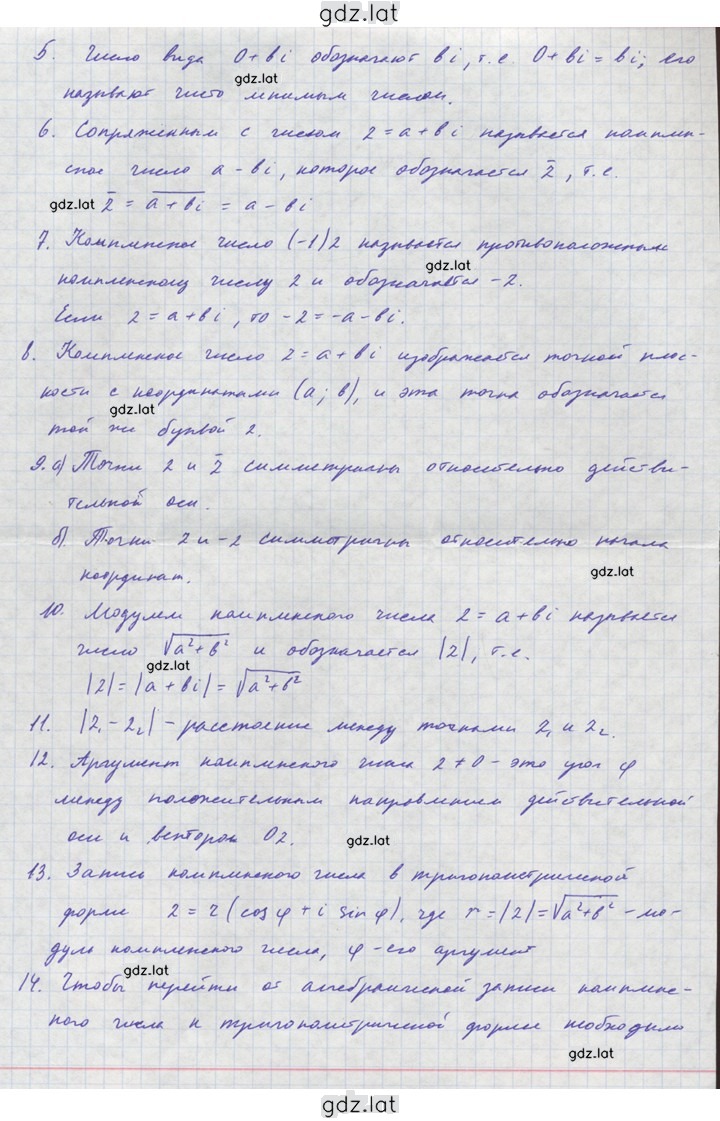 gdz.lat
5. Число вида 0 + bi обозначают bi, т.е. 0 + bi = bi; его
gdz.lat
называют чисто мнимым числом.
6. Сопряженным с числом z = a + bi называется комплек-
сное число a - bi, которое обозначается z̅, т.е.
gdz.lat z̅ = \overline{a + bi} = a - bi
7. Комплексное число (-1)z называется противоположным
gdz.lat
комплексному числу z и обозначается -z.
Если z = a + bi, то -z = -a - bi.
8. Комплексное число z = a + bi изображается точкой плос-
кости с координатами (a; b), и эта точка обозначается
gdz.lat
той же буквой z.
9. а) Точки z и z̅ симметричны относительно действи-
тельной оси.
б). Точки z и -z симметричны относительно начала
координат.
gdz.lat
10. Модулем комплексного числа z = a + bi называется
число √(a² + b²) и обозначается |z|, т.е.
gdz.lat
|z| = |a + bi| = √(a² + b²)
11. |z₁ - z₂| - расстояние между точками z₁ и z₂.
12. Аргумент комплексного числа z ≠ 0 - это угол φ
между положительным направлением действительной
оси и вектором Oz.
gdz.lat
13. Запись комплексного числа в тригонометрической
форме z = r(cos φ + i sin φ), где r = |z| = √(a² + b²) - мо-
дуль комплексного числа, φ - его аргумент
gdz.lat
14. Чтобы перейти от алгебраической записи комплекс-
ного числа к тригонометрической форме необходимо
gdz.lat
gdz.lat